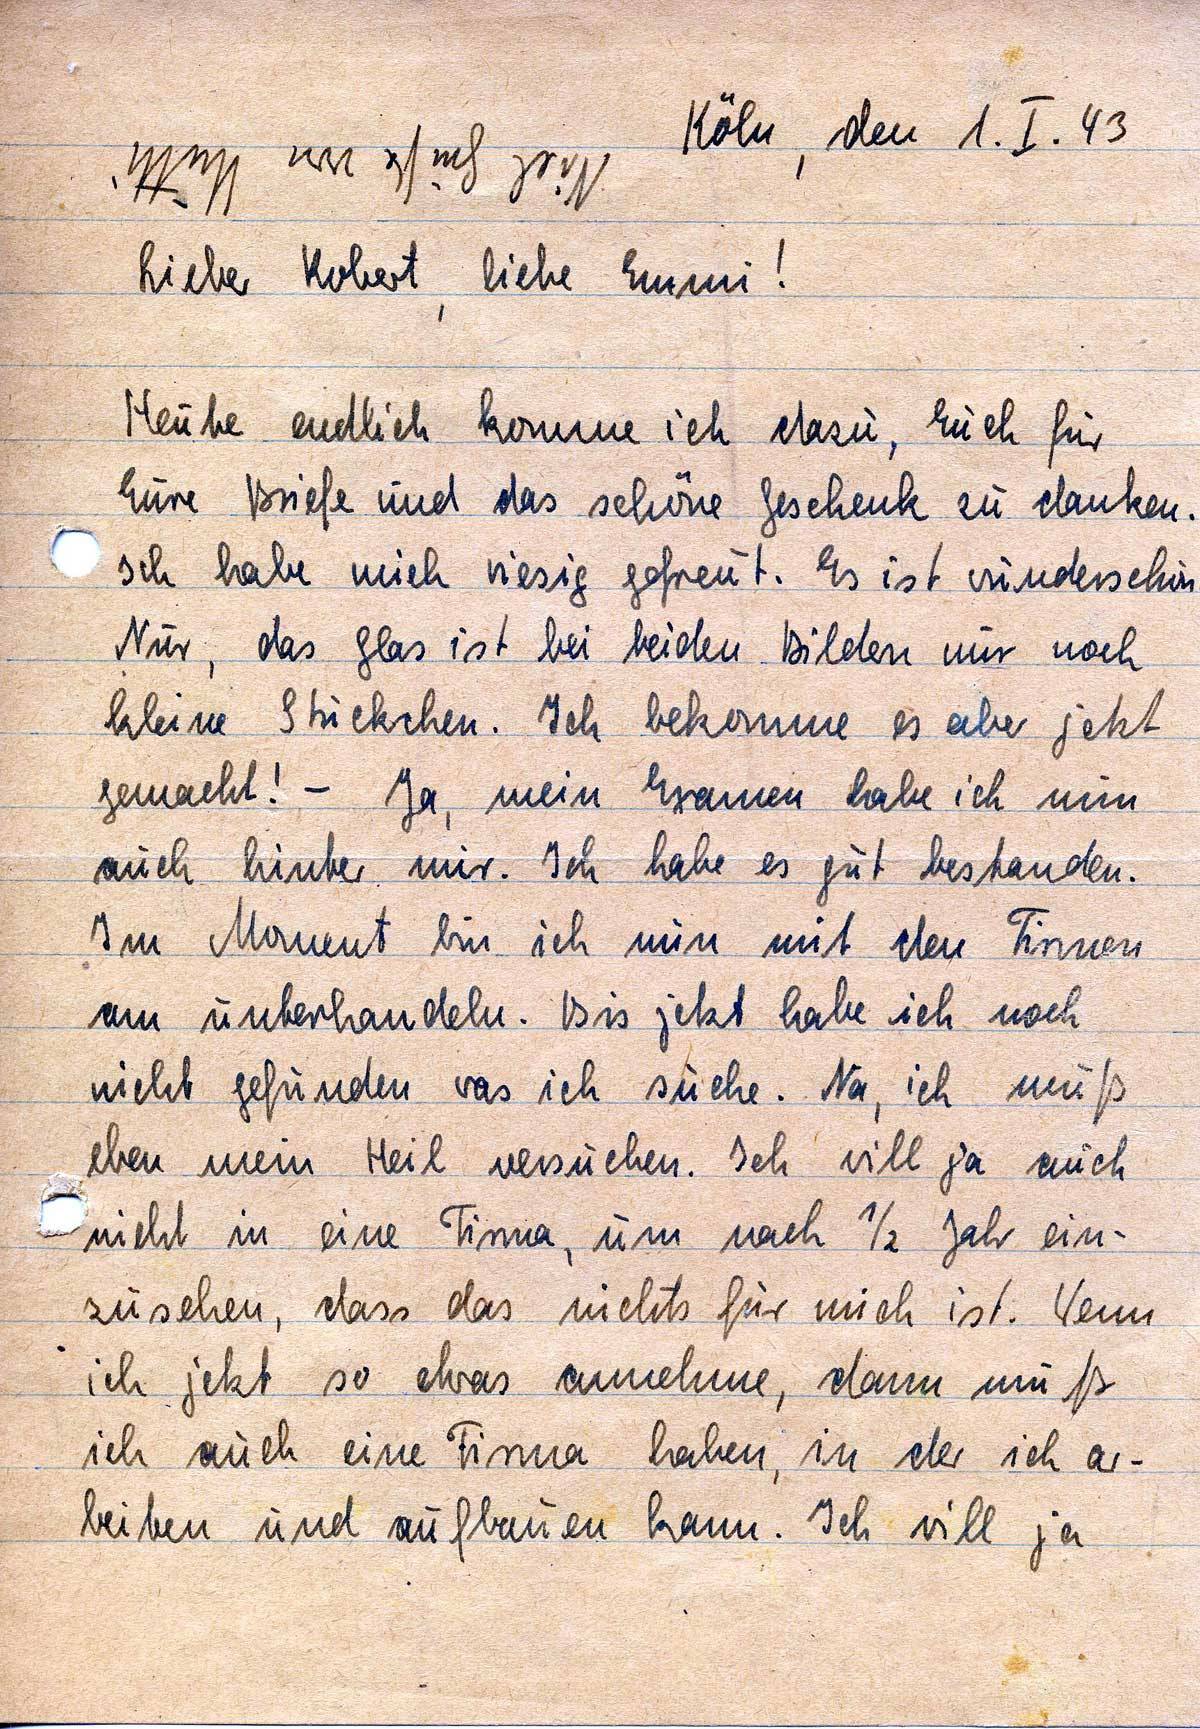 Köln, den 1. I. 43
Viel Grüße von Mutti.
Lieber Robert, liebe Emmi!
Heute endlich komme ich dazu, Euch für
Eure Briefe und das schöne Geschenk zu danken.
Ich habe mich riesig gefreut. Es ist wunderschön
Nur, das Glas ist bei beiden Bildern nur noch
kleine Stückchen. Ich bekomme es aber jetzt
gemacht! – Ja, mein Examen habe ich nun
auch hinter mir. Ich habe es gut bestanden.
Im Moment bin ich nun mit den Firmen
am unterhandeln. Bis jetzt habe ich noch
nicht gefunden was ich suche. Na, ich muß
eben mein Heil versuchen. Ich will ja auch
nicht in eine Firma, um nach 1/2 Jahr ein-
zusehen, dass das nichts für mich ist. Wenn
ich jetzt so etwas annehme, dann muß
ich auch eine Firma haben, in der ich ar-
beiten und aufbauen kann. Ich will ja